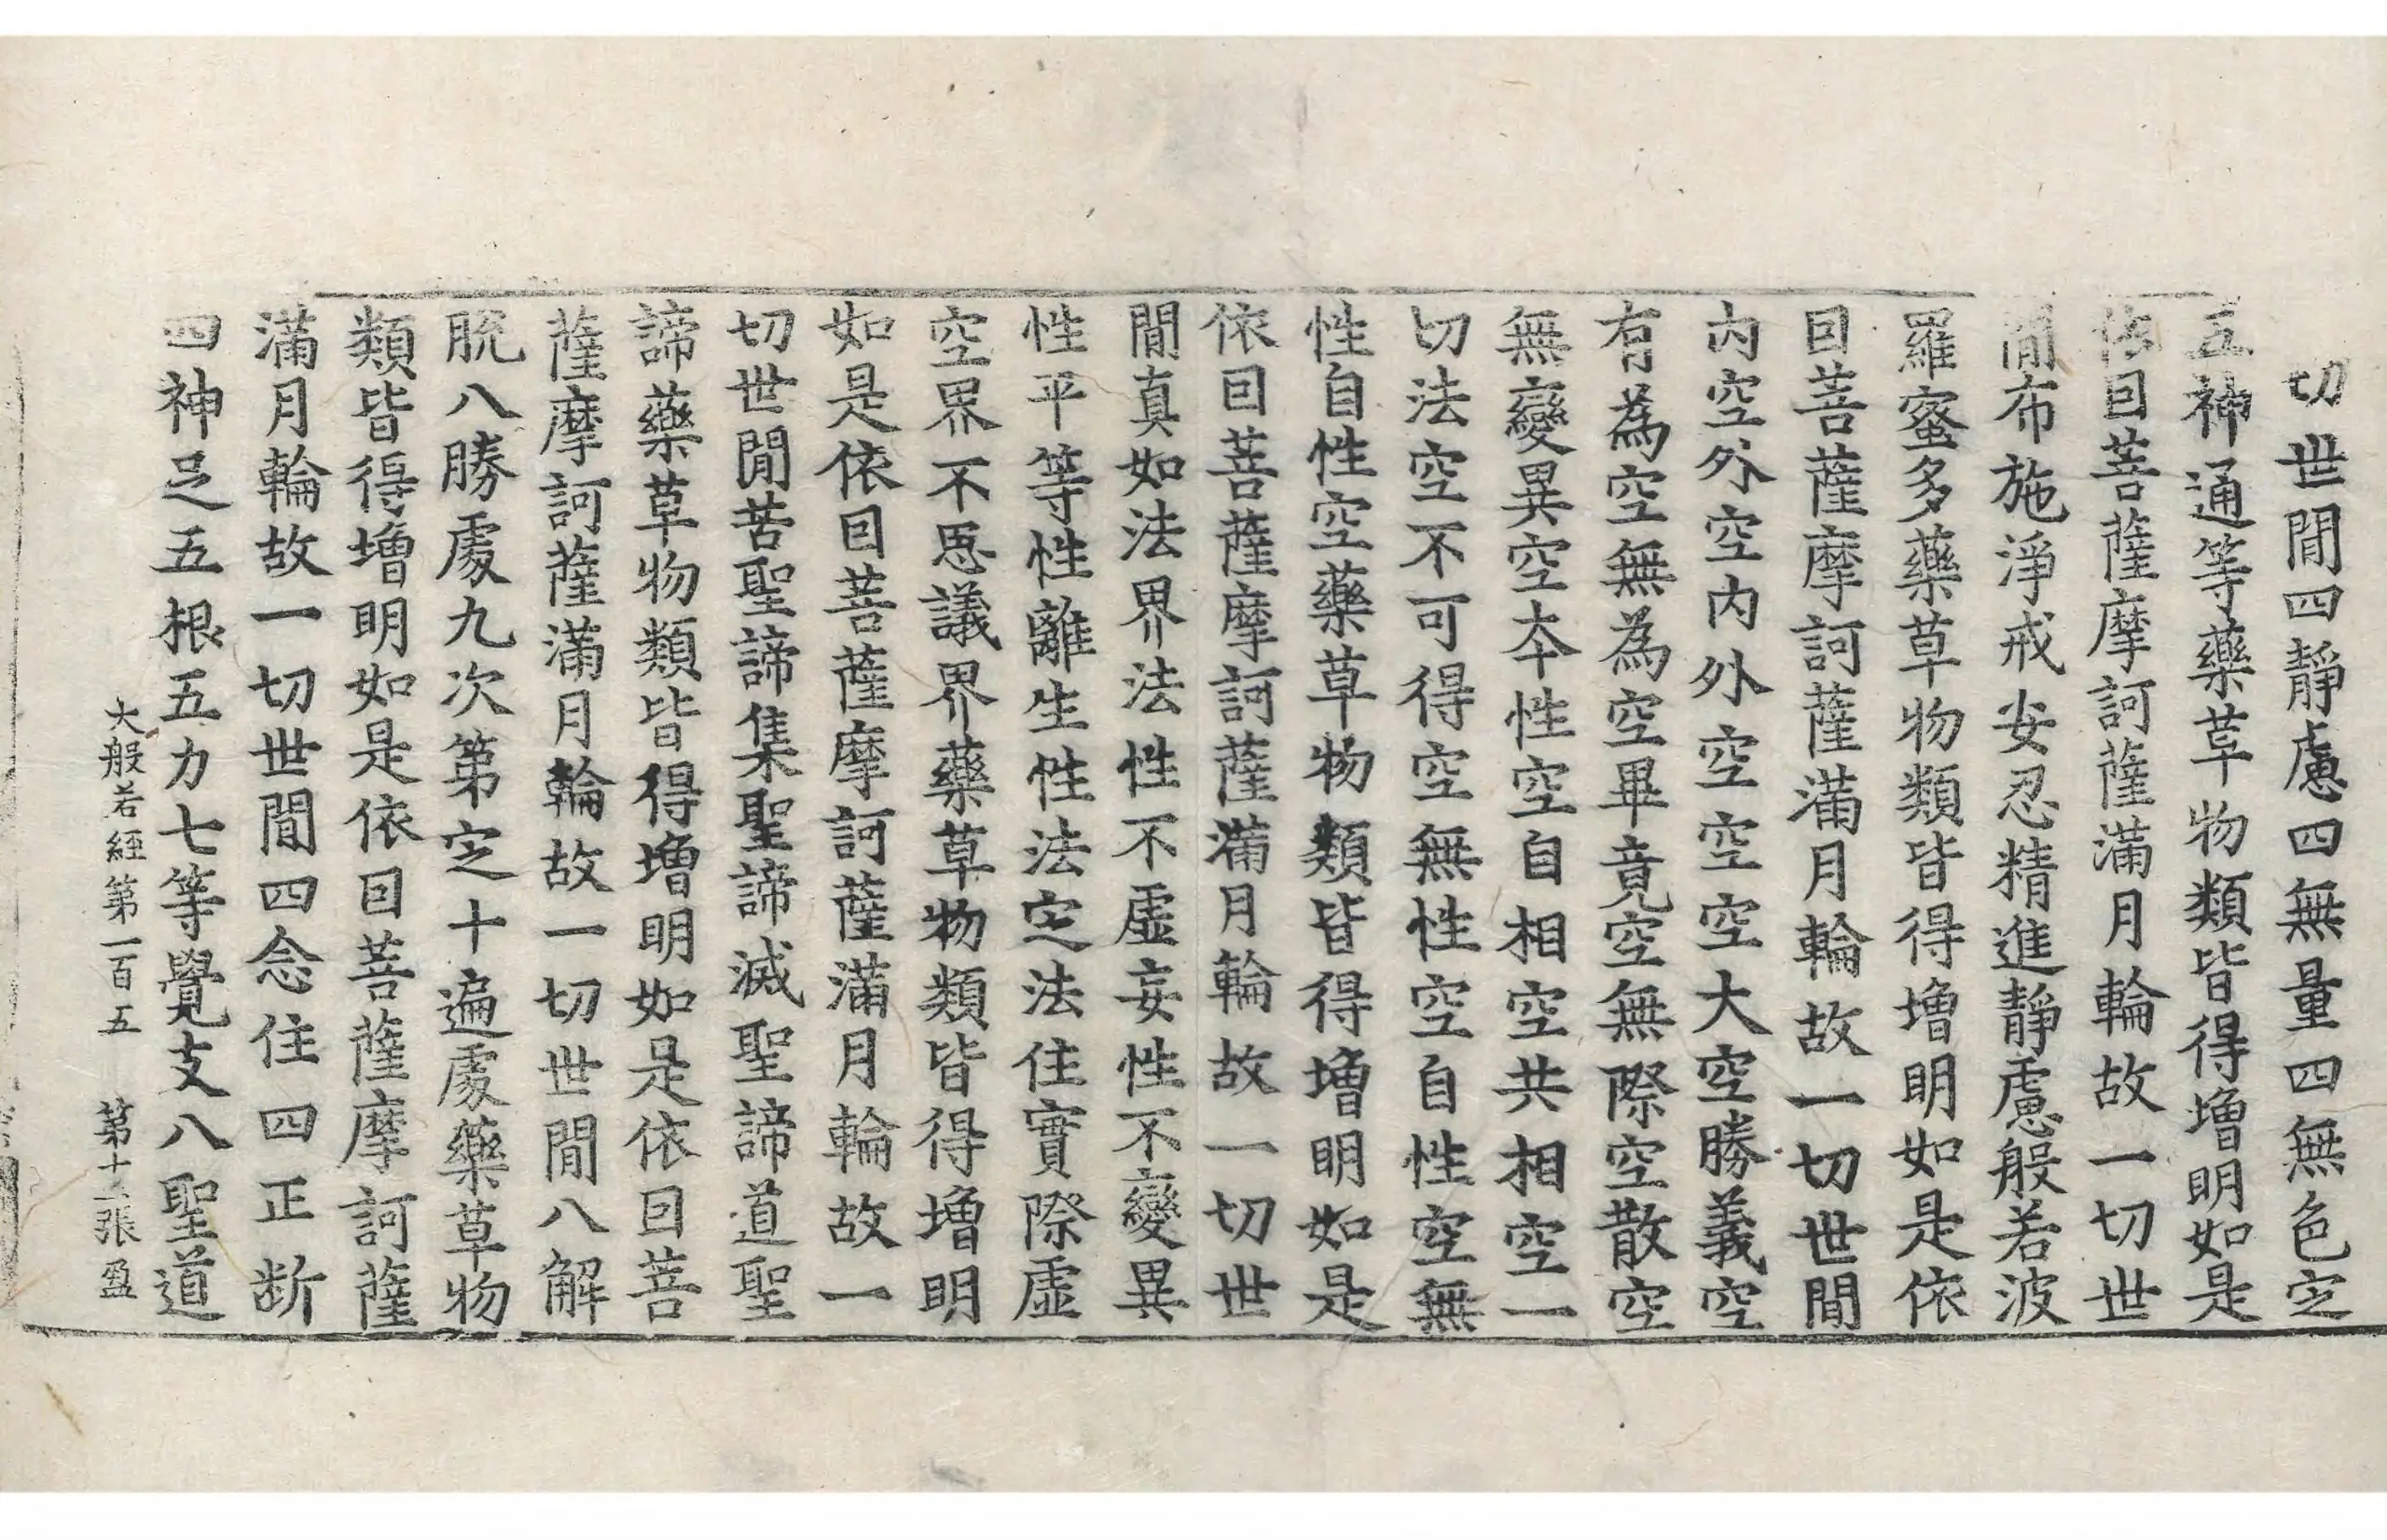 切世間四靜慮四無量四無色㝎
五神通等藥草物類皆得增明如是
依回菩薩摩訶薩滿月輪故一切世
間布施淨戒安忍精進靜慮般若波
羅蜜多藥草物類皆得增明如是依
回菩薩摩訶薩滿月輪故一切世間
内空外空内外空空空大空勝義空
有為空無為空畢竟空無際空散空
無變異空夲性空自相空共相空一
切法空不可得空無性空自性空無
性自性空藥草物類皆得增明如是
依回菩薩摩訶薩滿月輪故一切世
間真如法界法性不虛妄性不變異
性平等性離生性法㝎法住實際虛
空界不思議界藥草物類皆得增明
如是依回菩薩摩訶薩滿月輪故一
切世間苦聖諦集聖諦滅聖諦道聖
諦藥草物類皆得增明如是依回菩
薩摩訶薩滿月輪故一切世間八解
脫八勝處九次第㝎十遍處藥草物
類皆得增明如是依回菩薩摩訶薩
滿月輪故一切世間四念住四正斷
四神足五根五力七等覺支八聖道
大般若經第一百五 第十二張 盈